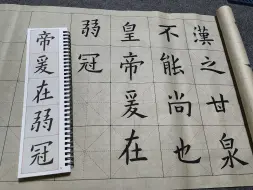 漢之甘泉
不能尚也
皇帝爰在
弱冠
帝爰在弱冠